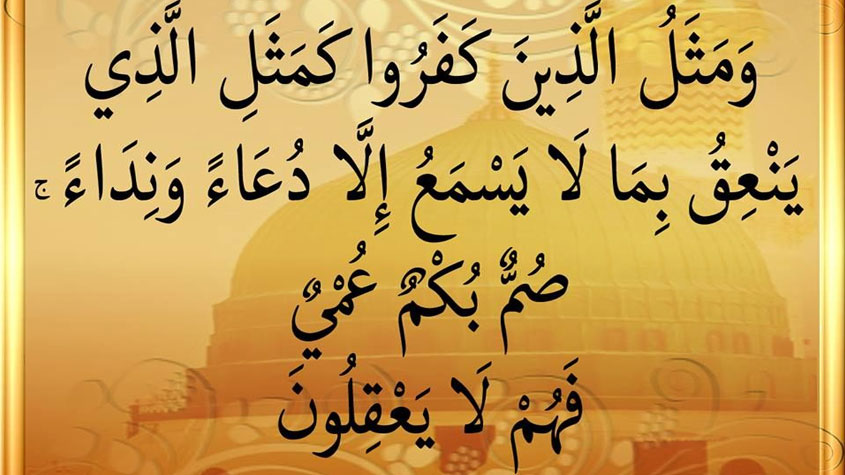 وَمَثَلُ الَّذِينَ كَفَرُوا كَمَثَلِ الَّذِي
يَنْعِقُ بِمَا لَا يَسْمَعُ إِلَّا دُعَاءً وَنِدَاءً ۚ
صُمٌّ بُكْمٌ عُمْيٌ
فَهُمْ لَا يَعْقِلُونَ